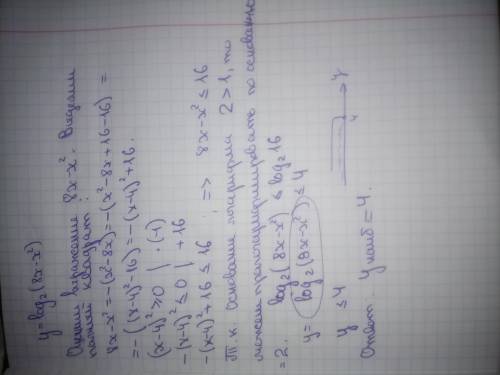 y=log₂(8x-x²)
Оценим выражение 8x-x². Выделим
полный квадрат:
8x-x²=-(x²-8x)=-(x²-8x+16-16)=
=-((x-4)²-16)=-(x-4)²+16.
(x-4)²≥0 | ·(-1)
-(x-4)²≤0 | +16
-(x-4)²+16≤16 ; => 8x-x²≤16
Т.к. основание логарифма 2>1, то
можем прологарифмировать по основанию
=2. log₂(8x-x²)≤log₂16
y= log₂(8x-x²)≤4
y≤4
4 y
Ответ. yнаиб=4.